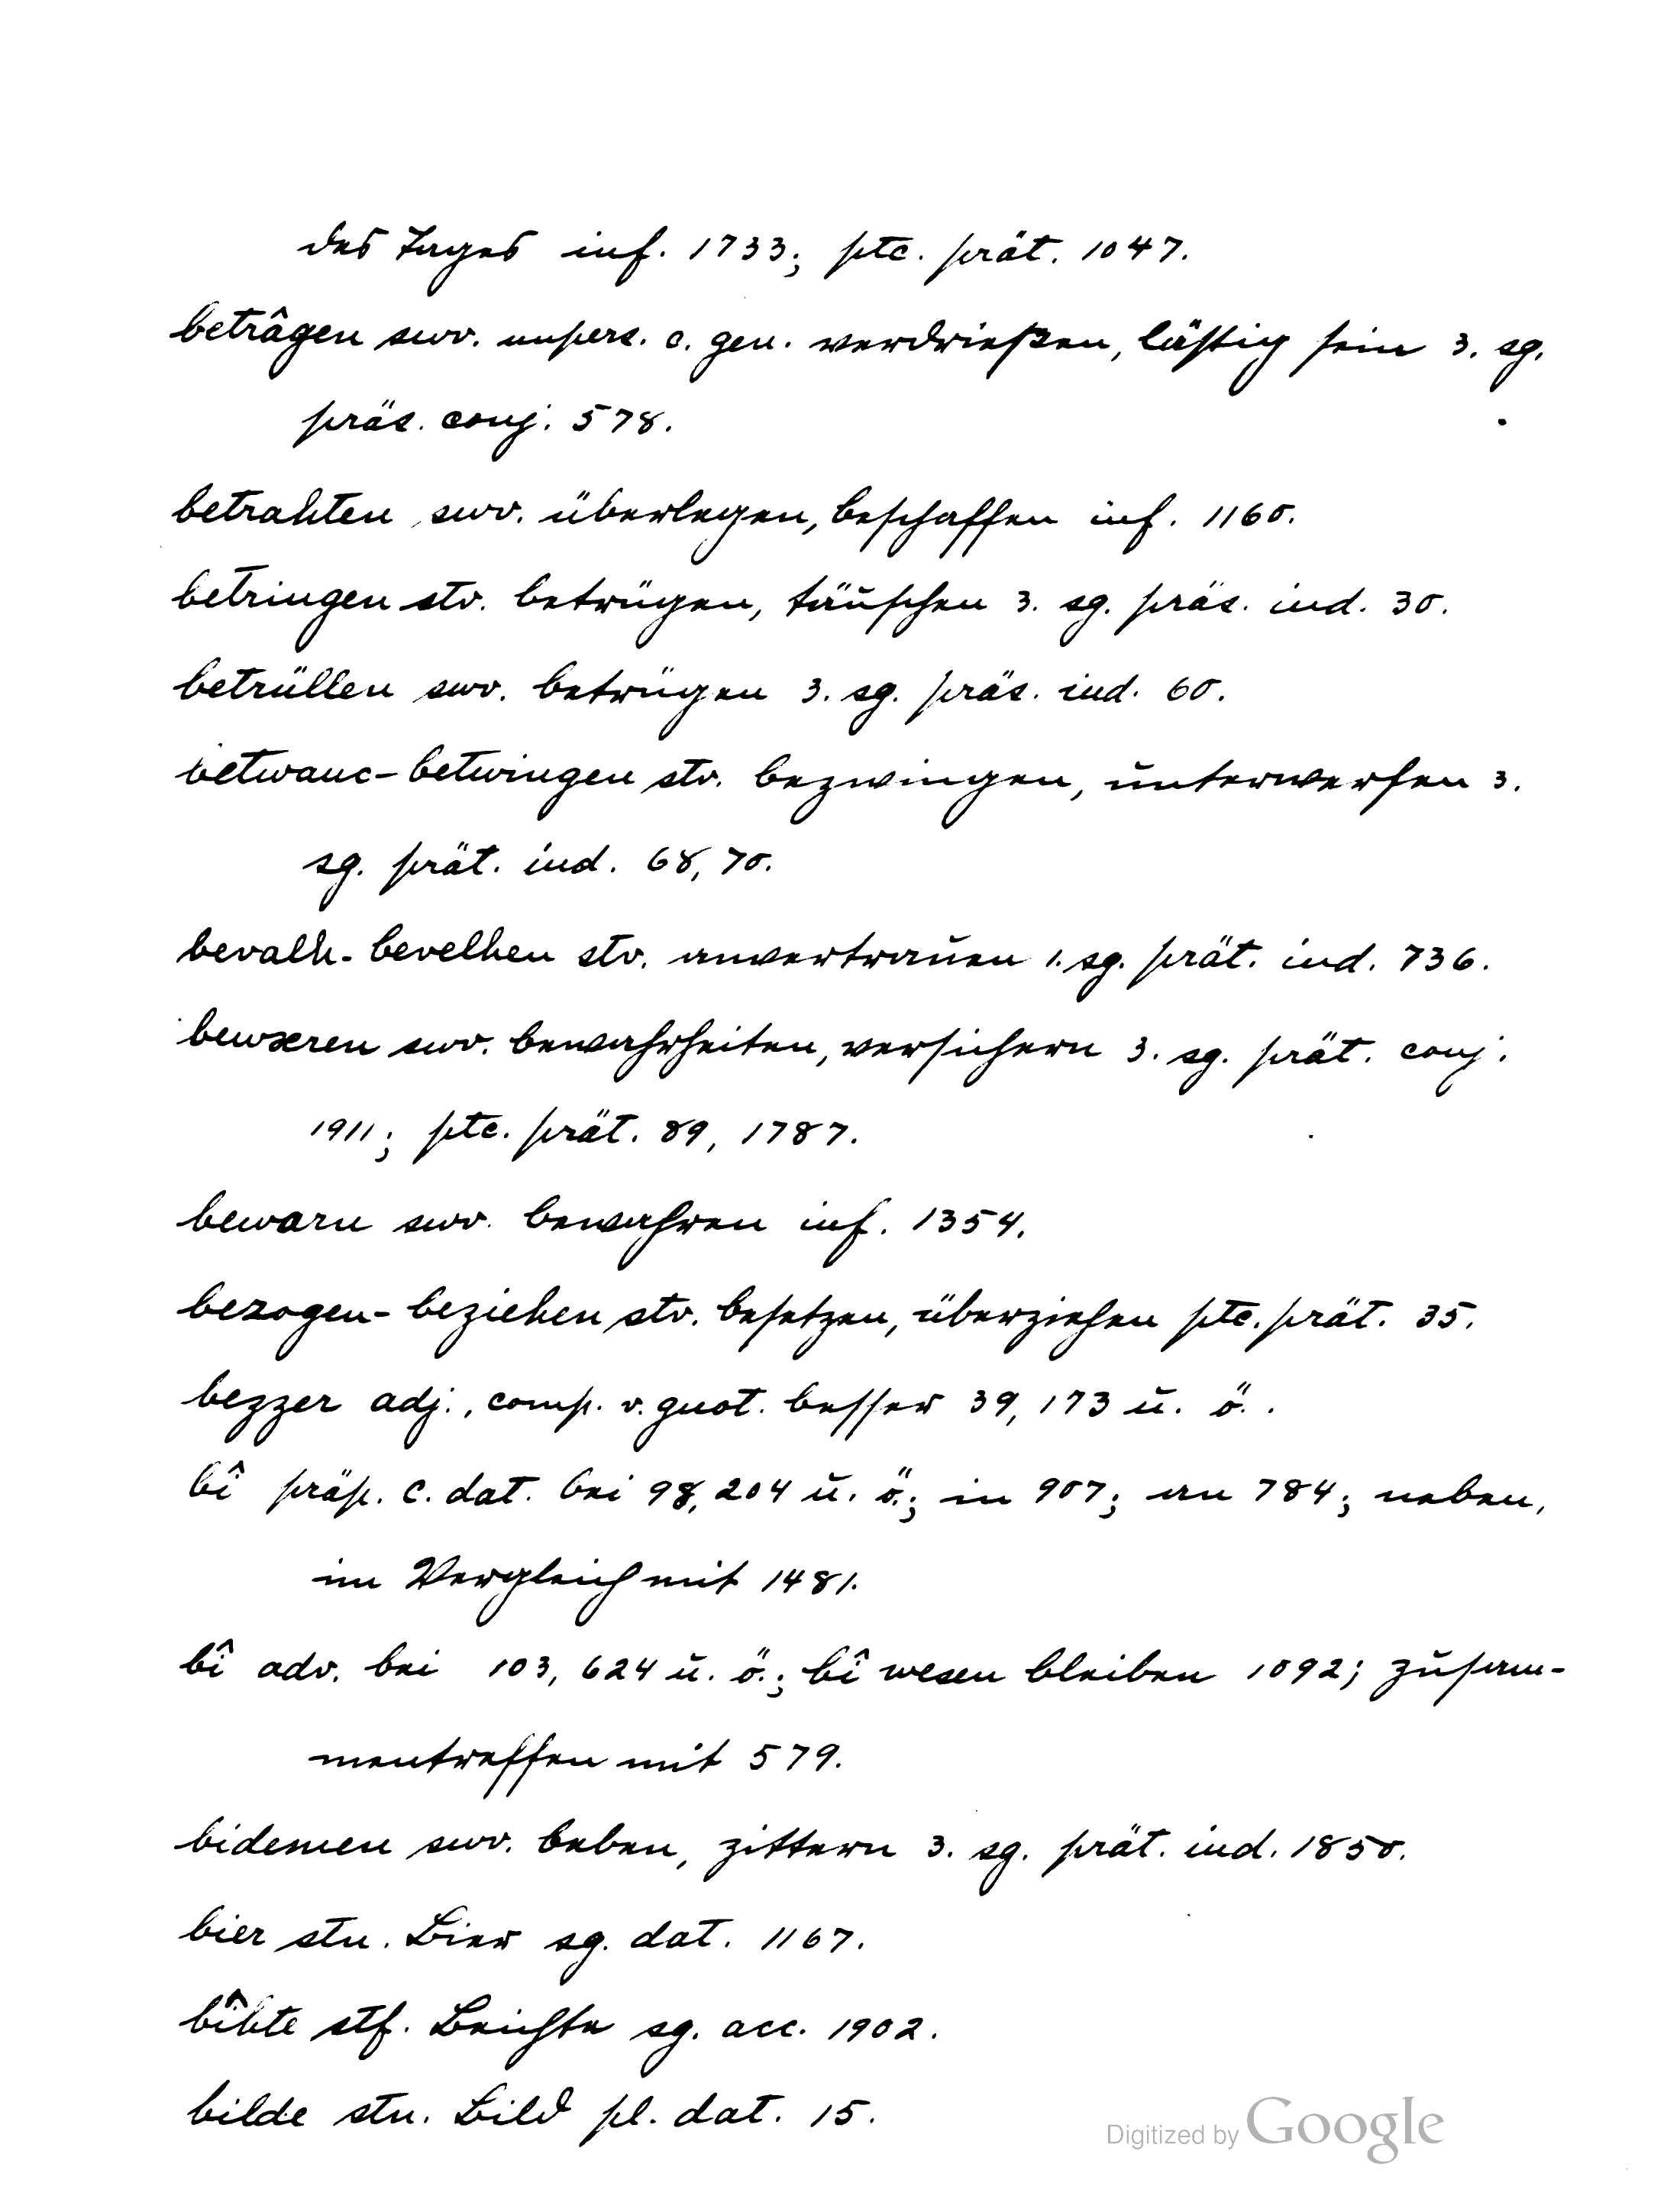 des Tages inf. 1733; ptc. prät. 1047.
betrâgen swv. unpers. c. gen. verdrießen, lästig sein 3. sg.
präs. conj. 578.
betrahten swv. überlegen, beschaffen inf. 1160.
betriugen stv. betrügen, täuschen 3. sg. präs. ind. 30.
betrüllen swv. betrügen 3. sg. präs. ind. 60.
betwanc-betwingen stv. bezwingen, unterwerfen 3.
sg. prät. ind. 68, 70.
bevalh-bevelhen stv. anvertrauen 1. sg. prät. ind. 736.
bewæren swv. bewahrheiten, versichern 3. sg. prät. conj.
1911; ptc. prät. 89, 1787.
bewarn swv. bewahren inf. 1354.
bezogen-beziehen stv. besetzen, überziehen ptc. prät. 35.
bezzer adj., comp. v. guot. besser 39, 173 u. ö..
bî präp. c. dat. bei 98, 204 u. ö.; in 907; an 784; neben,
im Vergleich mit 1481.
bî adv. bei 103, 624 u. ö.; bî wesen bleiben 1092; zusam-
mentreffen mit 579.
bidemen swv. beben, zittern 3. sg. prät. ind. 1850.
bier stn. Bier sg. dat. 1167.
bîhte stf. Beichte sg. acc. 1902.
bilde stn. Bild pl. dat. 15.
Digitized by Google